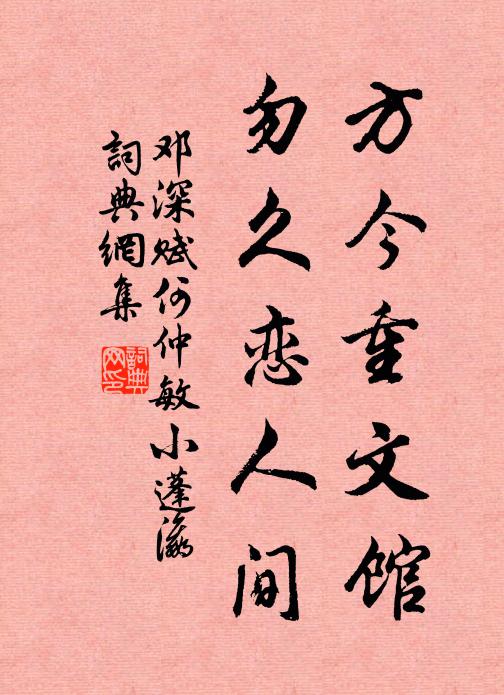 方今重文馆
勿久恋人间
邓深赋何仲敏小蓬瀛
詞典網集
詞典网印